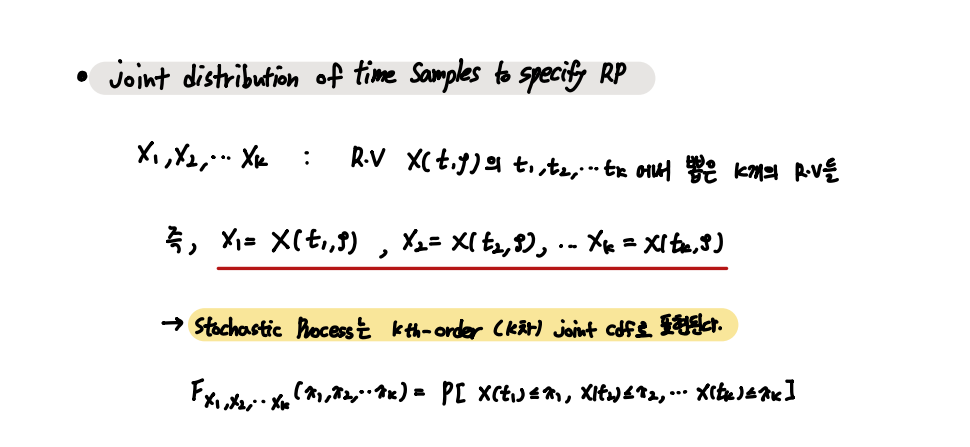 • Joint distribution of time samples to specify RP
X₁, X₂, ··· Xₖ : R.V X(t, ζ)의 t₁, t₂, ··· tₖ 에서 뽑은 k개의 R.V들
즉, X₁ = X(t₁, ζ) , X₂ = X(t₂, ζ), ·· Xₖ = X(tₖ, ζ)
→ Stochastic Process는 kth-order (k차) joint cdf로 표현된다.
F_{X₁,X₂,··Xₖ}(x₁, x₂, ··xₖ) = P[ X(t₁) ≤ x₁, X(t₂) ≤ x₂, ··· X(tₖ) ≤ xₖ ]